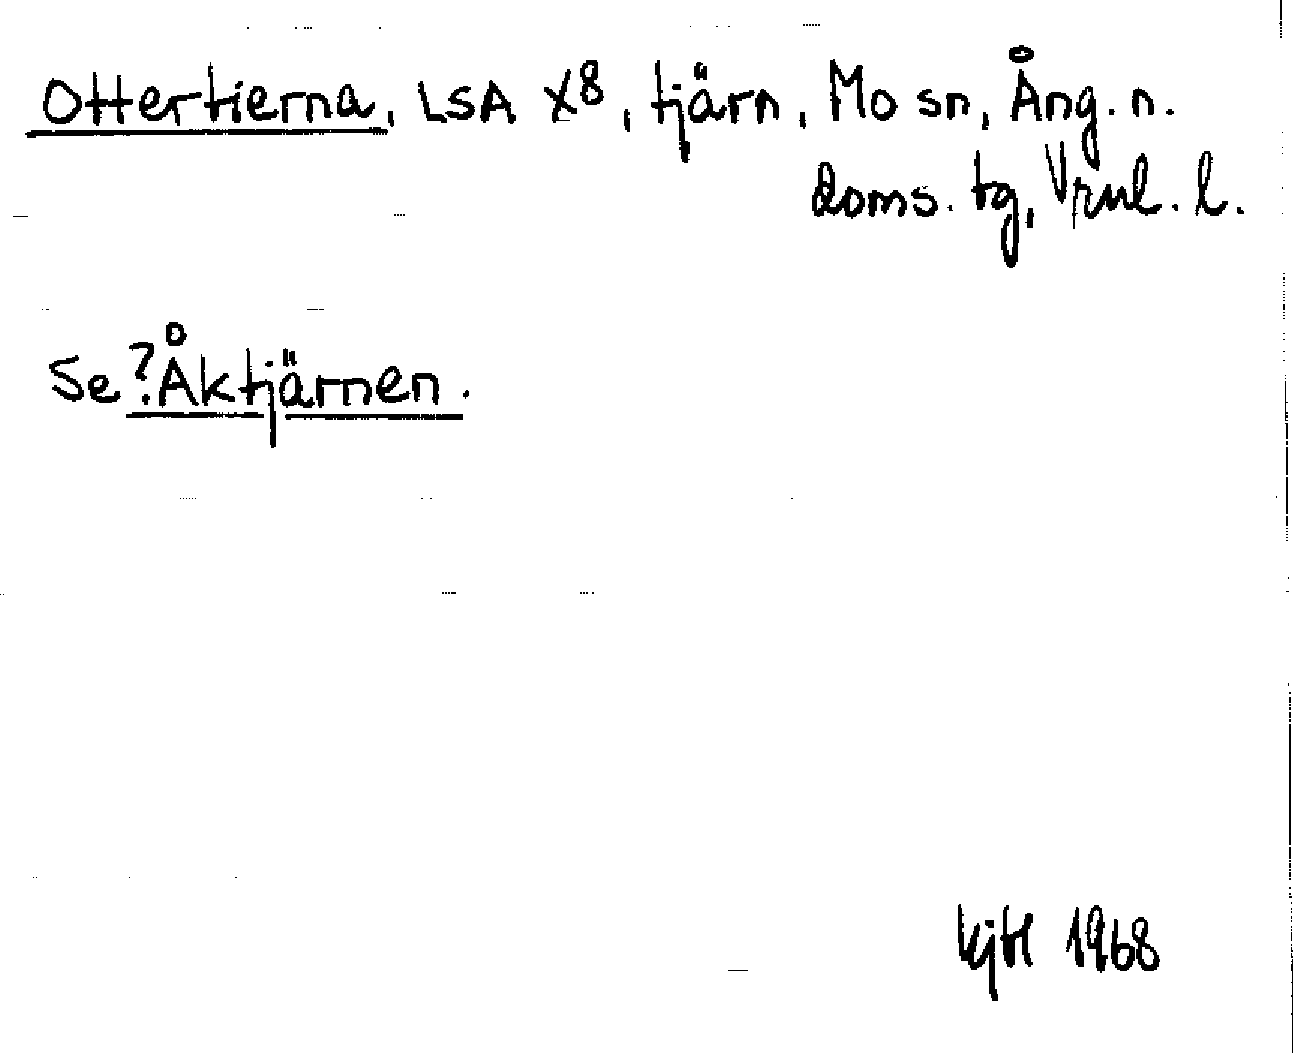 Ottertierna, LSA X8, tjärn, Mo sn, Ång. n.
doms. tg, Vrnl. l.
Se ?Åktjärnen.
1968